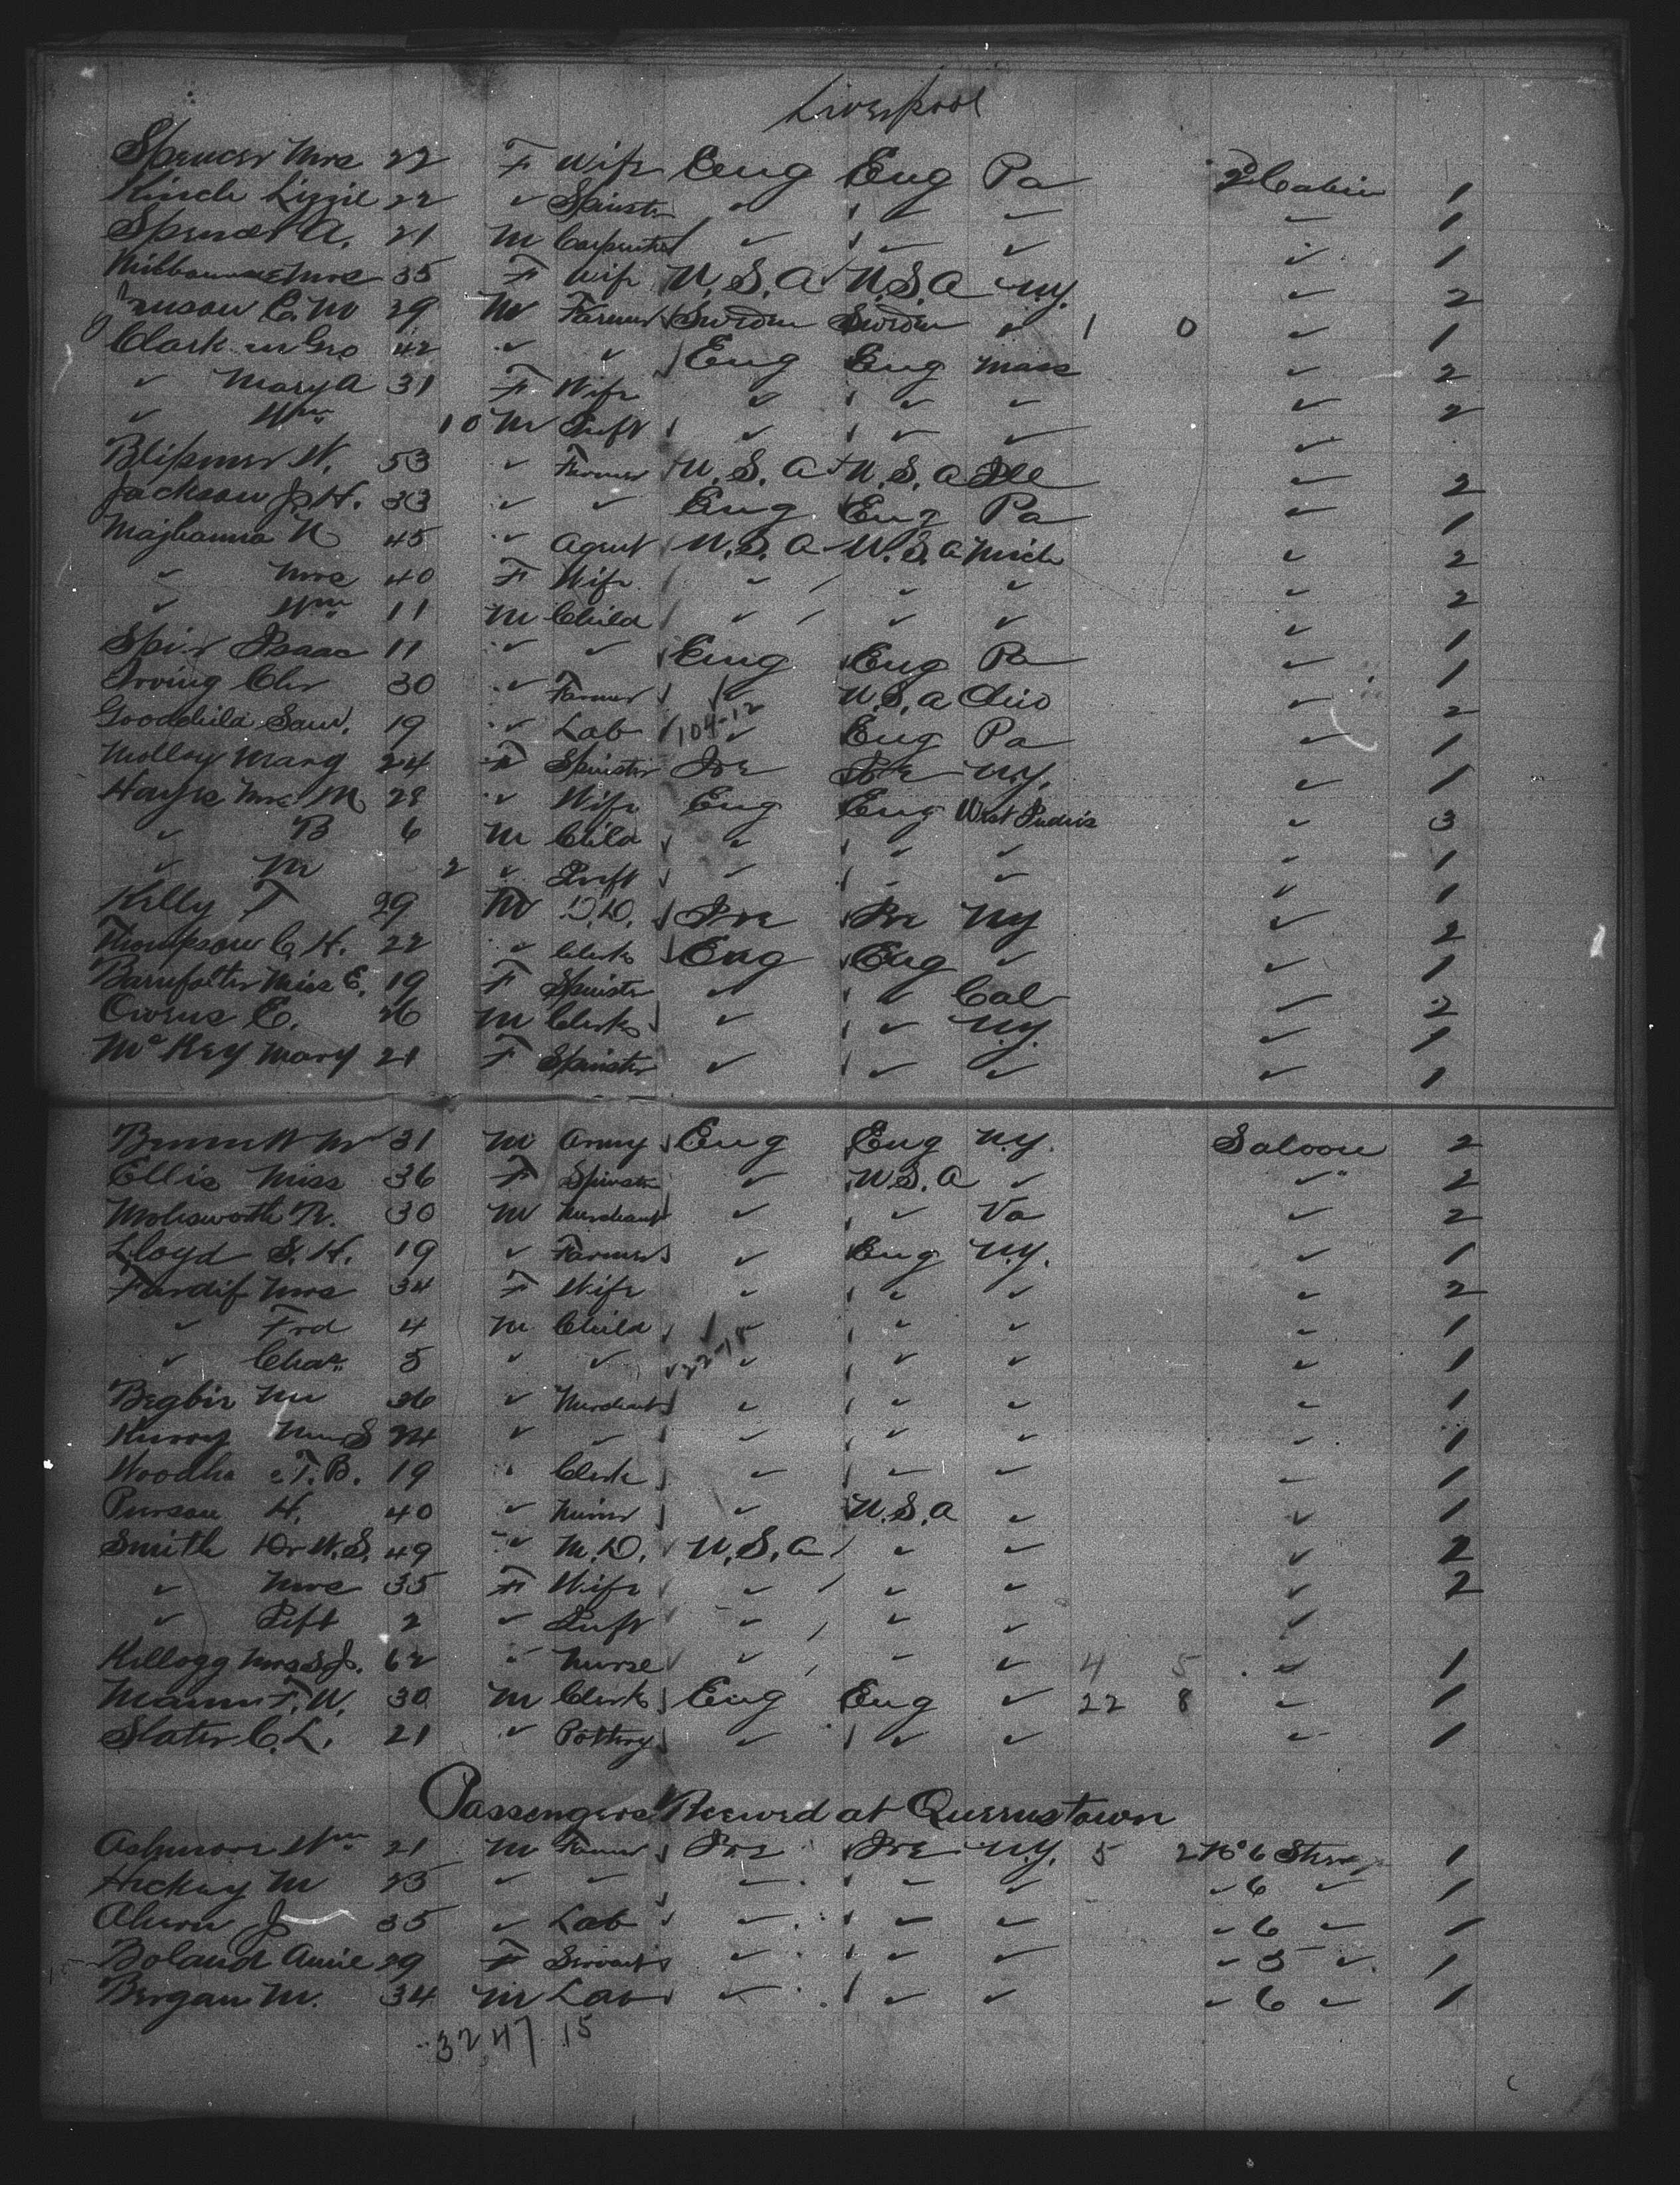 Liverpool
Spencer Mrs 22 F Wife Eng Eng Pa 2d Cabin 1
Kinch Lizzie 22 ✓ Spinster ✓ ✓ ✓ ✓ 1
Spencer A. 21 M Carpenter ✓ ✓ ✓ ✓ 1
Mrs 35 F Wife U.S.A U.S.A N.Y. ✓ 2
C. M 29 M Farmer Sweden Sweden ✓ 1 0 ✓ 1
Clark Geo 42 ✓ ✓ Eng Eng Mass ✓ 2
✓ Mary A 31 F Wife ✓ ✓ ✓ ✓ 2
✓ Wm 10 M Inft ✓ ✓ ✓ ✓
W. 53 ✓ Farmer U.S.A U.S.A Ill ✓ 2
Jackson J. H. 33 ✓ ✓ Eng Eng Pa ✓ 1
N 45 ✓ Agent U.S.A U.S.A Mich ✓ 2
✓ Mrs 40 F Wife ✓ ✓ ✓ ✓ 2
✓ Wm 11 M Child ✓ ✓ ✓ ✓ 1
Isaac 11 ✓ ✓ Eng Eng Pa ✓ 1
Irving Chr 30 ✓ Farmer ✓ U.S.A Ohio ✓ 2
Goodchild Saml. 19 ✓ Lab 104-12 ✓ Eng Pa ✓ 1
Molloy Marg 24 F Spinster Ire Ire N.Y. ✓ 1
Hayes Mrs M 28 ✓ Wife Eng Eng West Indies ✓ 3
✓ B 6 M Child ✓ ✓ ✓ ✓ 1
✓ M 2 ✓ Inft ✓ ✓ ✓ ✓ 1
Kelly T 29 M D.D. Ire Ire NY ✓ 2
Thompson C. H. 22 ✓ Clerk Eng Eng ✓ ✓ 1
Miss E. 19 F Spinster ✓ ✓ Cal ✓ 2
Owens E. 26 M Clerk ✓ ✓ N.Y. ✓ 1
McKey Mary 21 F Spinster ✓ ✓ ✓ ✓ 1
Bennett Mr 31 M Army Eng Eng N.Y. Saloon 2
Ellis Miss 36 F Spinster ✓ U.S.A ✓ ✓ 2
Molesworth R. 30 M Merchant ✓ ✓ Va ✓ 2
Lloyd S. H. 19 ✓ Farmer ✓ Eng N.Y. ✓ 1
Tardif Mrs 34 F Wife ✓ ✓ ✓ ✓ 2
✓ Frd 4 M Child ✓ ✓ ✓ ✓ 1
✓ Chas 5 ✓ ✓ 22-15 ✓ ✓ ✓ ✓ 1
Begbie Mr 26 ✓ Merchant ✓ ✓ ✓ ✓ 1
S 24 ✓ ✓ ✓ ✓ ✓ ✓ 1
T. B. 19 ✓ Clerk ✓ ✓ ✓ ✓ 1
H. 40 ✓ Miner ✓ U.S.A ✓ ✓ 1
Smith Dr W. S. 49 ✓ M.D. U.S.A ✓ ✓ ✓ 2
✓ Mrs 35 F Wife ✓ ✓ ✓ ✓ 2
✓ Inft 2 ✓ Inft ✓ ✓ ✓ ✓
Kellogg Mrs S J. 62 ✓ Nurse ✓ ✓ ✓ 4 5 ✓ 1
Mann T. W. 30 M Clerk Eng Eng ✓ 22 8 ✓ 1
Slater C. L. 21 ✓ Pottery ✓ ✓ ✓ ✓ 1
Passengers Received at Queenstown
Ashmore Wm 21 M Farmer Ire Ire N.Y. 5 2 No 6 1
Hickey M 23 ✓ ✓ ✓ ✓ ✓ ✓ 6 ✓ 1
Ahern J 35 ✓ Lab ✓ ✓ ✓ ✓ 6 ✓ 1
Boland Annie 29 F Servant ✓ ✓ ✓ ✓ 5 ✓ 1
Bergan M. 34 M Lab ✓ ✓ ✓ ✓ 6 ✓ 1
32 47 15